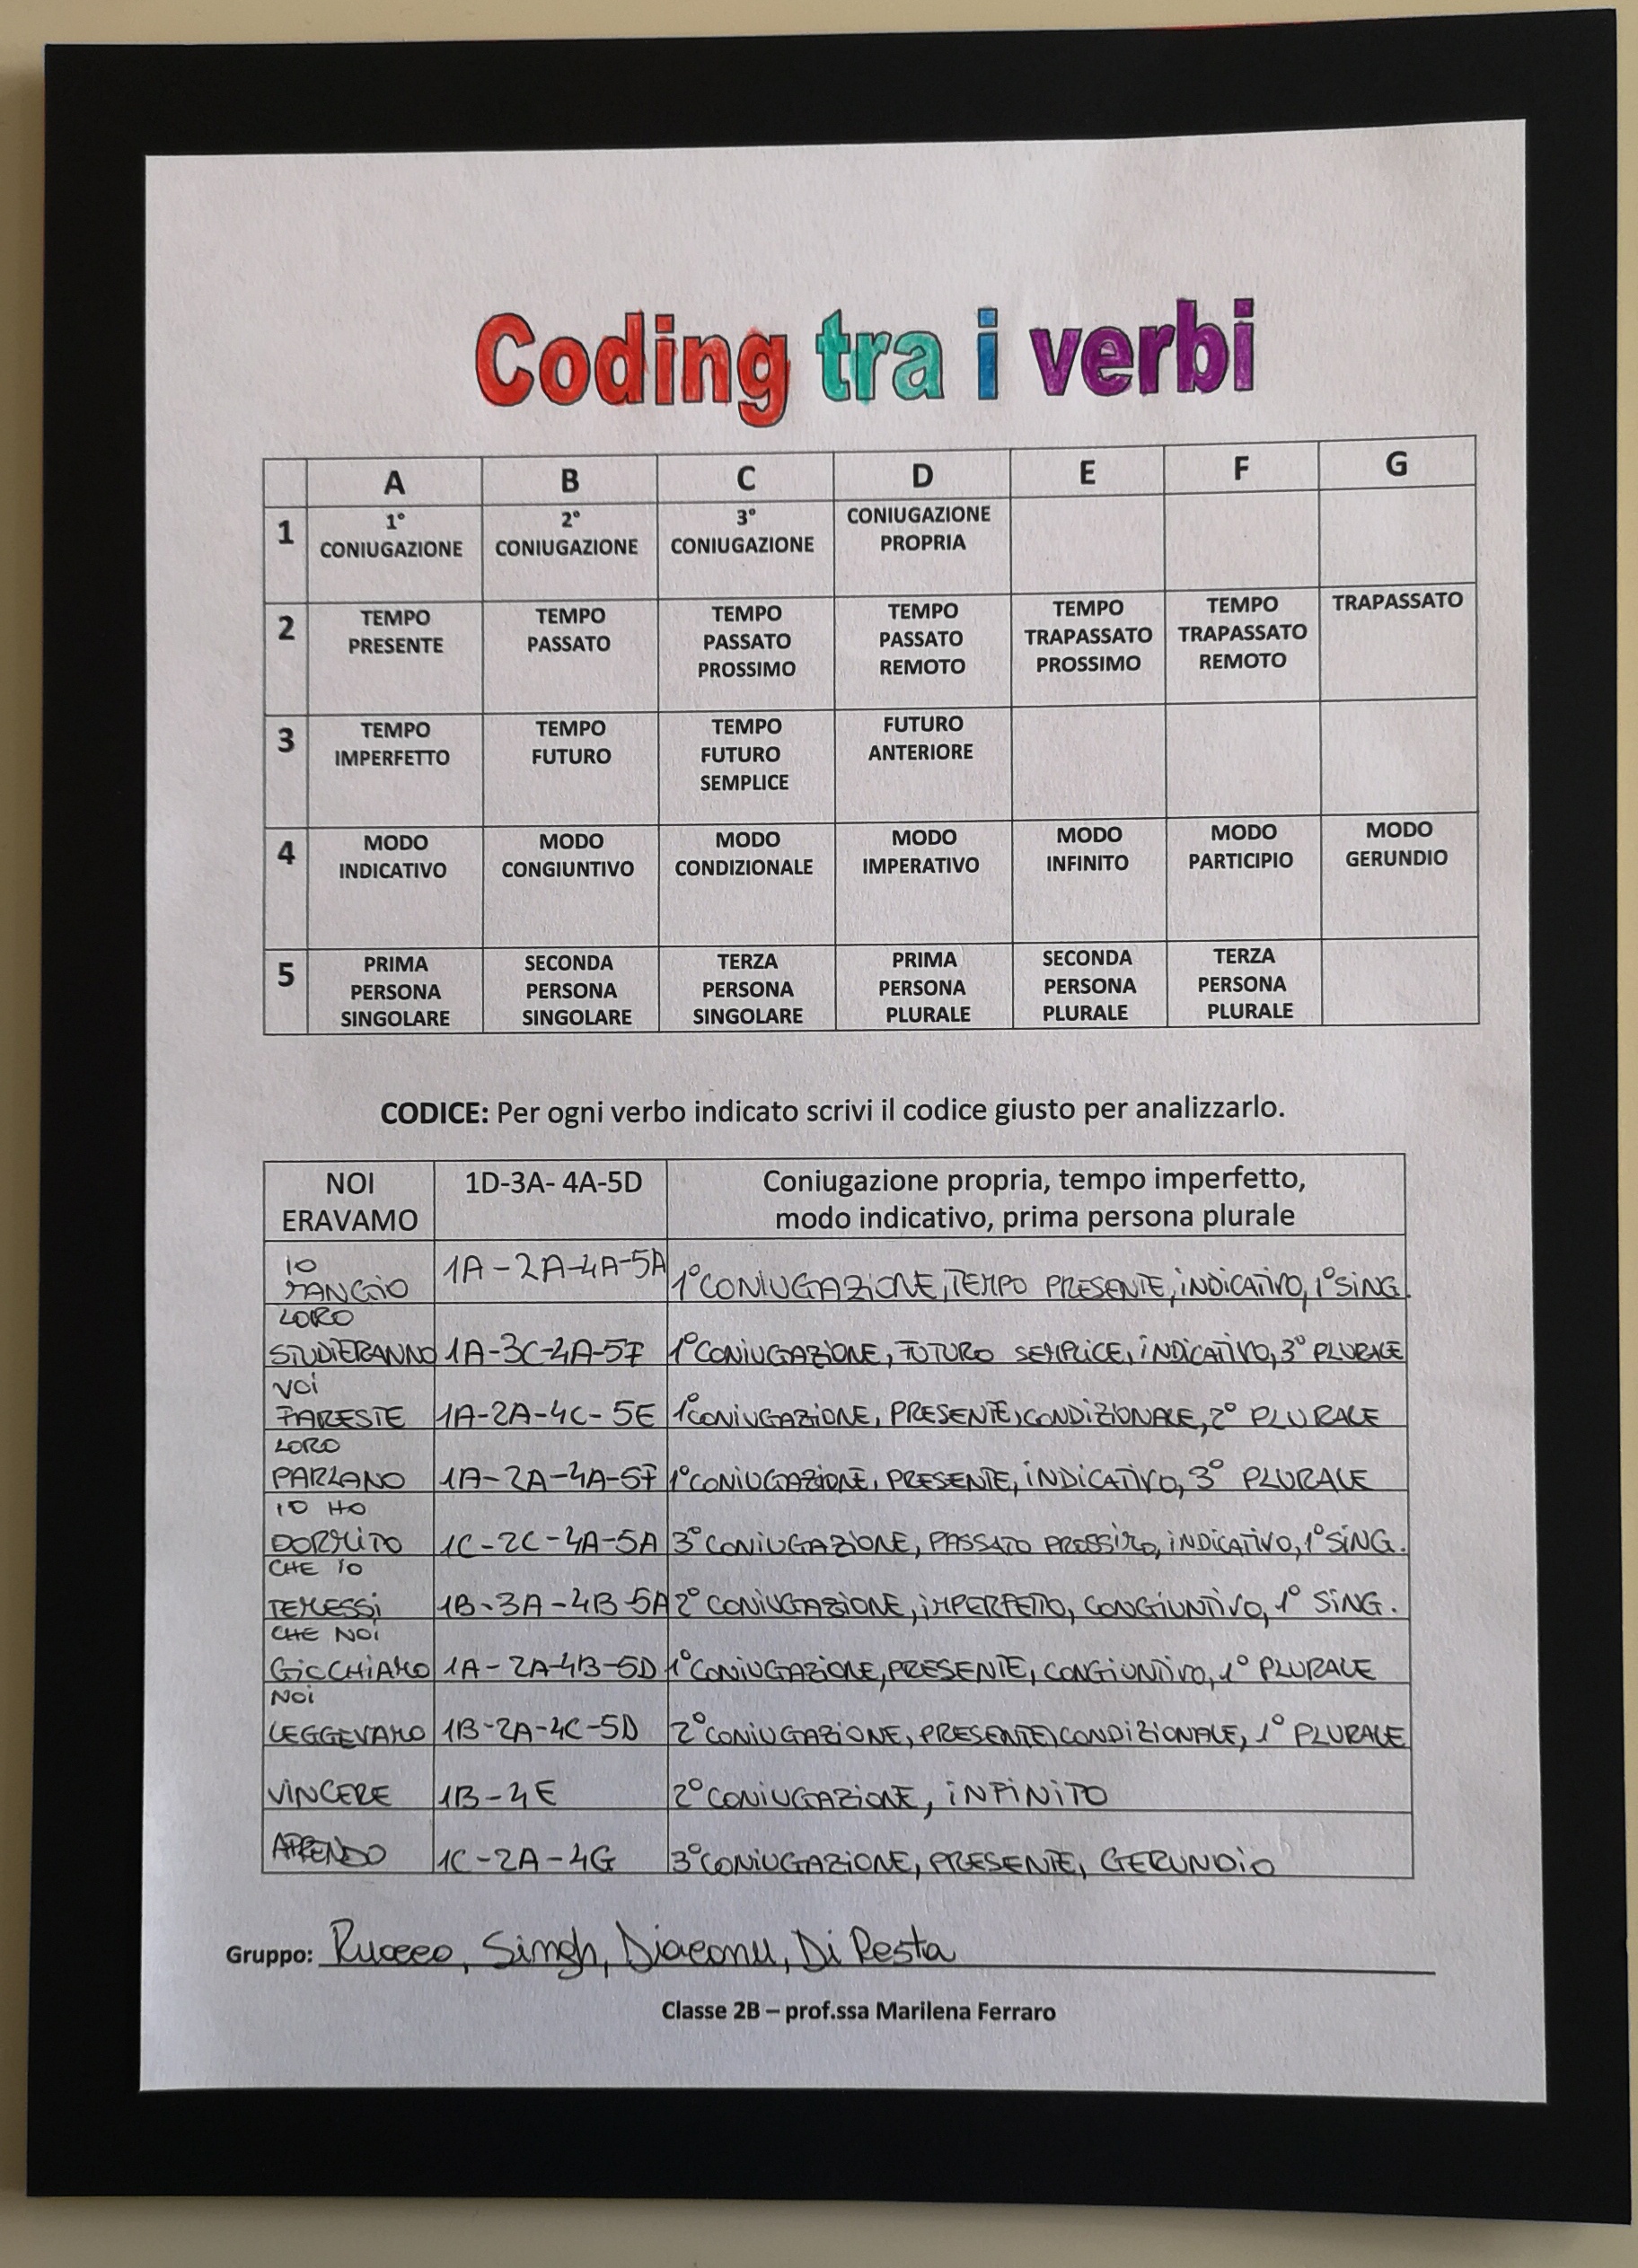 Coding tra i verbi
A B C D E F G
1 1° CONIUGAZIONE 2° CONIUGAZIONE 3° CONIUGAZIONE CONIUGAZIONE PROPRIA
2 TEMPO PRESENTE TEMPO PASSATO TEMPO PASSATO PROSSIMO TEMPO PASSATO REMOTO TEMPO TRAPASSATO PROSSIMO TEMPO TRAPASSATO REMOTO TRAPASSATO
3 TEMPO IMPERFETTO TEMPO FUTURO TEMPO FUTURO SEMPLICE FUTURO ANTERIORE
4 MODO INDICATIVO MODO CONGIUNTIVO MODO CONDIZIONALE MODO IMPERATIVO MODO INFINITO MODO PARTICIPIO MODO GERUNDIO
5 PRIMA PERSONA SINGOLARE SECONDA PERSONA SINGOLARE TERZA PERSONA SINGOLARE PRIMA PERSONA PLURALE SECONDA PERSONA PLURALE TERZA PERSONA PLURALE
CODICE: Per ogni verbo indicato scrivi il codice giusto per analizzarlo.
NOI ERAVAMO 1D-3A- 4A-5D Coniugazione propria, tempo imperfetto, modo indicativo, prima persona plurale
IO MANGIO 1A-2A-4A-5A 1° CONIUGAZIONE, TEMPO PRESENTE, INDICATIVO, 1° SING.
LORO STUDIERANNO 1A-3C-4A-5F 1° CONIUGAZIONE, FUTURO SEMPLICE, INDICATIVO, 3° PLURALE
VOI FARESTE 1A-2A-4C-5E 1° CONIUGAZIONE, PRESENTE, CONDIZIONALE, 2° PLURALE
LORO PARLANO 1A-2A-4A-5F 1° CONIUGAZIONE, PRESENTE, INDICATIVO, 3° PLURALE
IO HO DORMITO 1C-2C-4A-5A 3° CONIUGAZIONE, PASSATO PROSSIMO, INDICATIVO, 1° SING.
CHE IO TEMESSI 1B-3A-4B-5A 2° CONIUGAZIONE, IMPERFETTO, CONGIUNTIVO, 1° SING.
CHE NOI GIOCHIAMO 1A-2A-4B-5D 1° CONIUGAZIONE, PRESENTE, CONGIUNTIVO, 1° PLURALE
NOI LEGGEVAMO 1B-2A-4C-5D 2° CONIUGAZIONE, PRESENTE, CONDIZIONALE, 1° PLURALE
VINCERE 1B-4E 2° CONIUGAZIONE, INFINITO
APRENDO 1C-2A-4G 3° CONIUGAZIONE, PRESENTE, GERUNDIO
Gruppo: Singh, Diaconu, Di Resta
Classe 2B – prof.ssa Marilena Ferraro